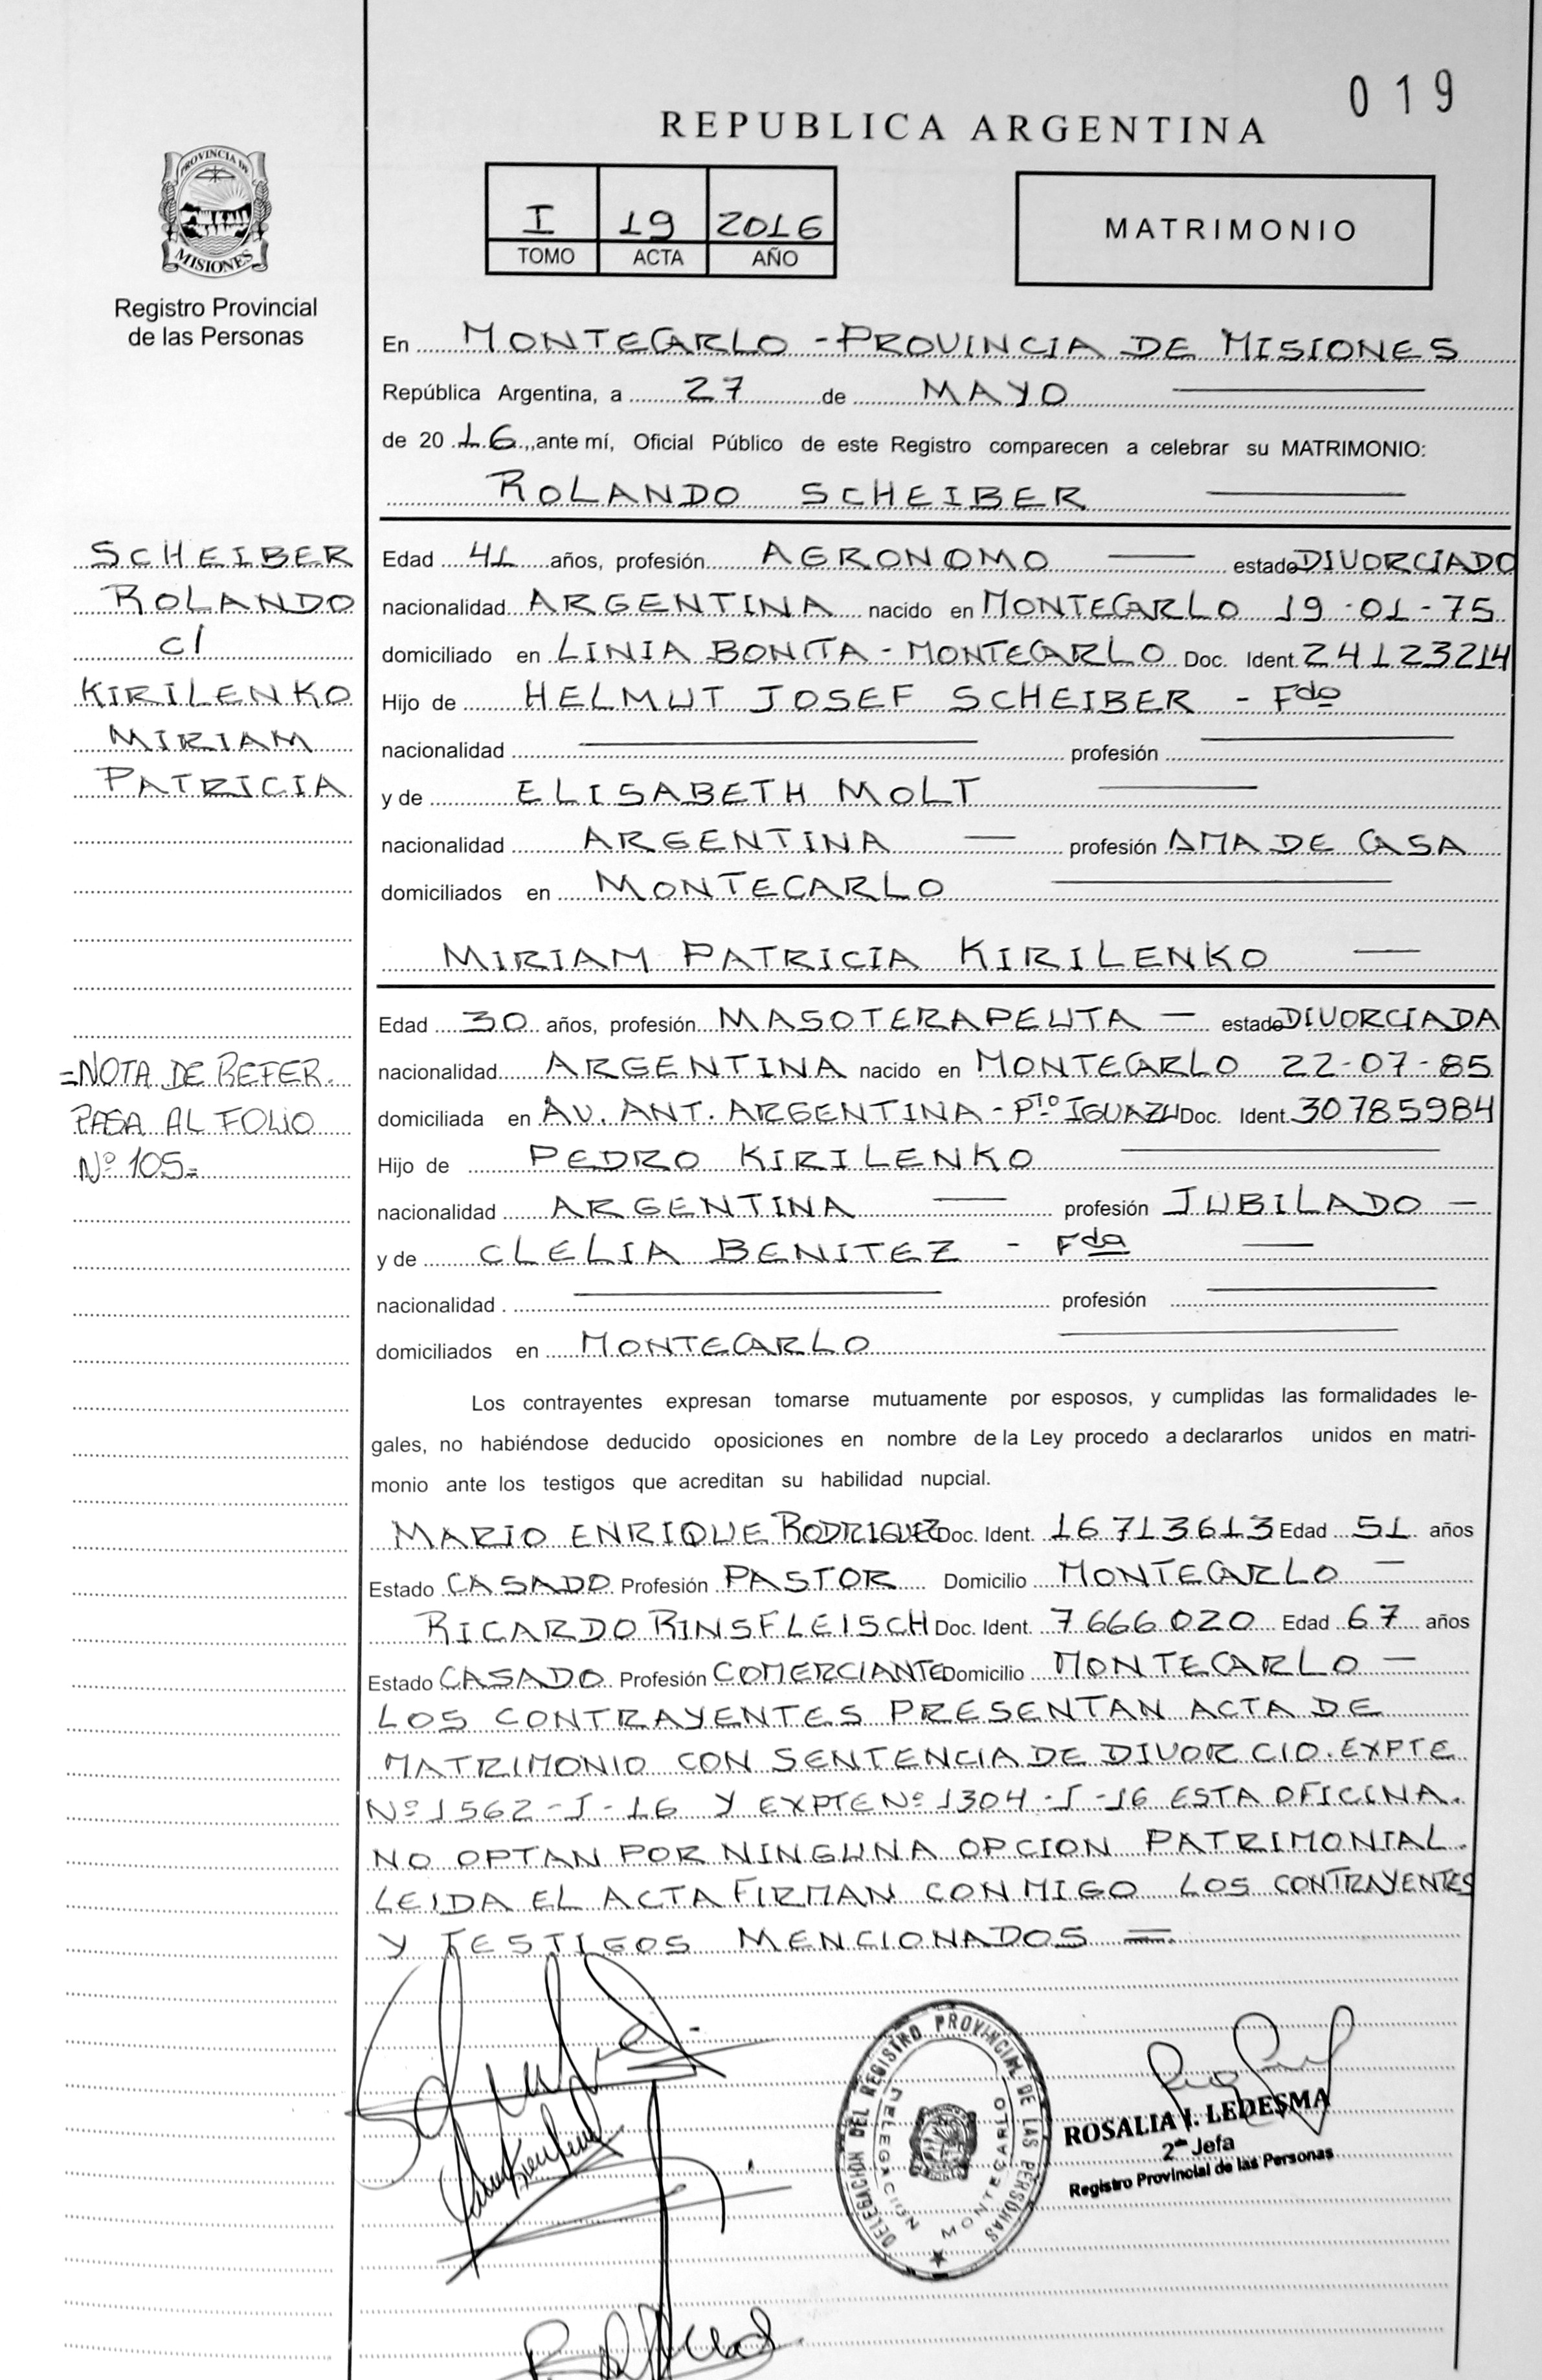 019
REPUBLICA ARGENTINA
PROVINCIA DE
MISIONES
Registro Provincial
de las Personas
I 19 2016
TOMO ACTA AÑO
MATRIMONIO
En MONTECARLO - PROVINCIA DE MISIONES
República Argentina, a 27 de MAYO
de 2016, ante mí, Oficial Público de este Registro comparecen a celebrar su MATRIMONIO:
ROLANDO SCHEIBER
SCHEIBER
ROLANDO
c/
KIRILENKO
MIRIAM
PATRICIA
Edad 41 años, profesión AGRONOMO estado DIVORCIADO
nacionalidad ARGENTINA nacido en MONTECARLO 19-01-75
domiciliado en LINIA BONITA - MONTECARLO Doc. Ident. 24123214
Hijo de HELMUT JOSEF SCHEIBER - Fdo
nacionalidad profesión
y de ELISABETH MOLT
nacionalidad ARGENTINA profesión AMA DE CASA
domiciliados en MONTECARLO
MIRIAM PATRICIA KIRILENKO
Edad 30 años, profesión MASOTERAPEUTA estado DIVORCIADA
nacionalidad ARGENTINA nacido en MONTECARLO 22-07-85
domiciliada en AV. ANT. ARGENTINA - PTO IGUAZU Doc. Ident. 30785984
Hijo de PEDRO KIRILENKO
nacionalidad ARGENTINA profesión JUBILADO
y de CLELIA BENITEZ - Fda
nacionalidad profesión
domiciliados en MONTECARLO
=NOTA DE REFER.
PASA AL FOLIO
Nº 105=
Los contrayentes expresan tomarse mutuamente por esposos, y cumplidas las formalidades le-
gales, no habiéndose deducido oposiciones en nombre de la Ley procedo a declararlos unidos en matri-
monio ante los testigos que acreditan su habilidad nupcial.
MARIO ENRIQUE RODRIGUEZ Doc. Ident. 16713613 Edad 51 años
Estado CASADO Profesión PASTOR Domicilio MONTECARLO
RICARDO RINSFLEISCH Doc. Ident. 7666020 Edad 67 años
Estado CASADO Profesión COMERCIANTE Domicilio MONTECARLO
LOS CONTRAYENTES PRESENTAN ACTA DE
MATRIMONIO CON SENTENCIA DE DIVORCIO. EXPTE
Nº 1562-I-16 Y EXPTE Nº 1304-I-16 ESTA OFICINA.
NO OPTAN POR NINGUNA OPCION PATRIMONIAL.
LEIDA EL ACTA FIRMAN CONMIGO LOS CONTRAYENTES
Y TESTIGOS MENCIONADOS =
DELEGACION DEL REGISTRO PROVINCIAL DE LAS PERSONAS
DELEGACIÓN MONTECARLO
ROSALIA I. LEDESMA
2da Jefa
Registro Provincial de las Personas